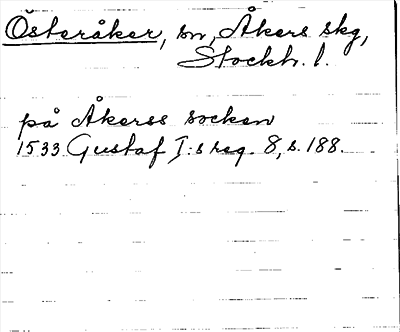 Österåker, sn, Åkers skg,
Stockh. l.
på Åkerss socken
1533 Gustaf I:s reg. 8, s. 188.